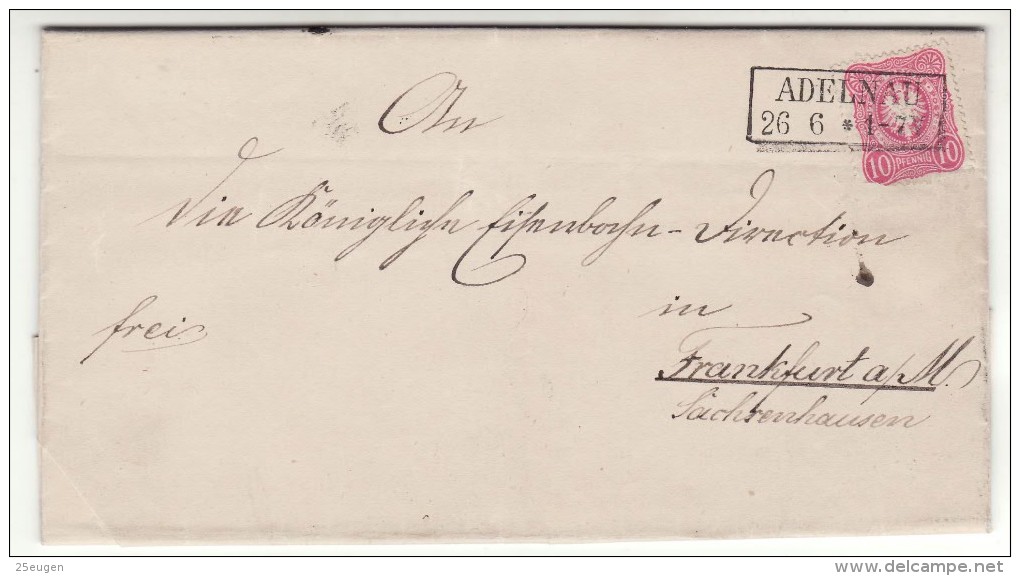 ADELNAU
26 6 * 4-7N
10 PFENNIG 10
An
die Königliche Eisenbahn-Direction
in
frei
Frankfurt a/M.
Sachsenhausen
25eugen
www.delcampe.net